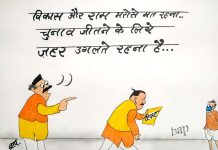 विकास और राम भरोसे मत रहना..
चुनाव जीतने के लिये
ज़हर उगलते रहना है...